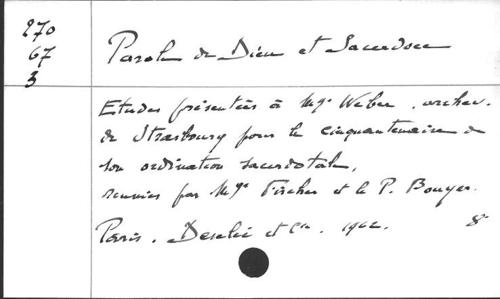 270
67
3
Parole de Dieu et Sacerdoce
Etudes présentées à Mgr Weber, archev.
de Strasbourg pour le cinquantenaire de
son ordination sacerdotale,
réunies par Mgr Fischer et le P. Bouyer.
Paris. Desclée et Cie. 1962. 8